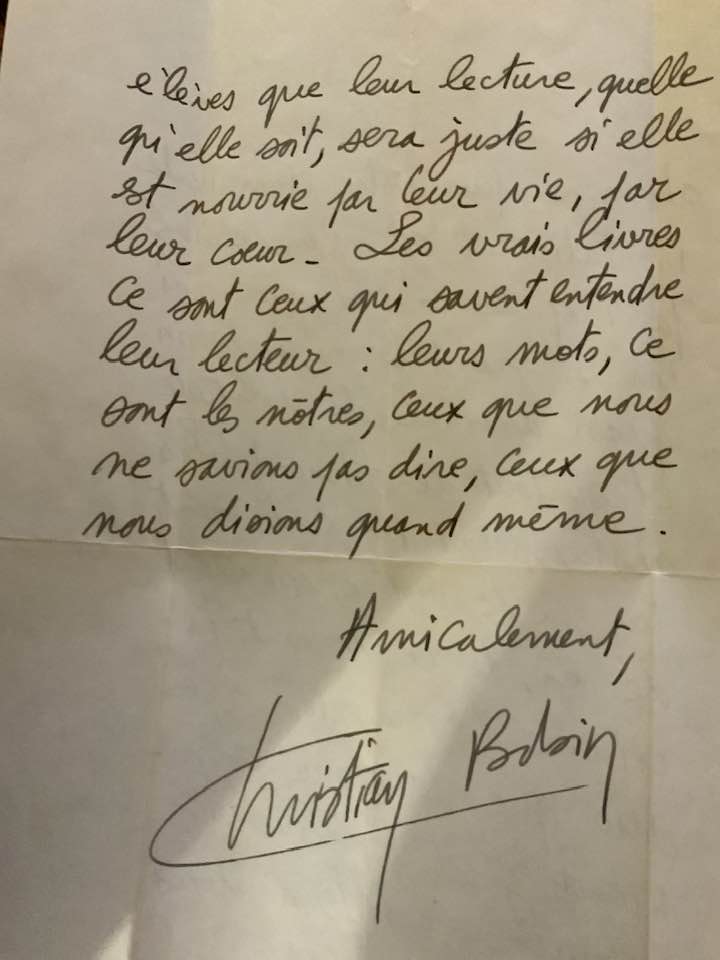 élèves que leur lecture, quelle
qu'elle soit, sera juste si elle
est nourrie par leur vie, par
leur coeur - Les vrais livres
ce sont ceux qui savent entendre
leur lecteur : leurs mots, ce
sont les nôtres, ceux que nous
ne savions pas dire, ceux que
nous disions quand même.
Amicalement,
Christian Bobin